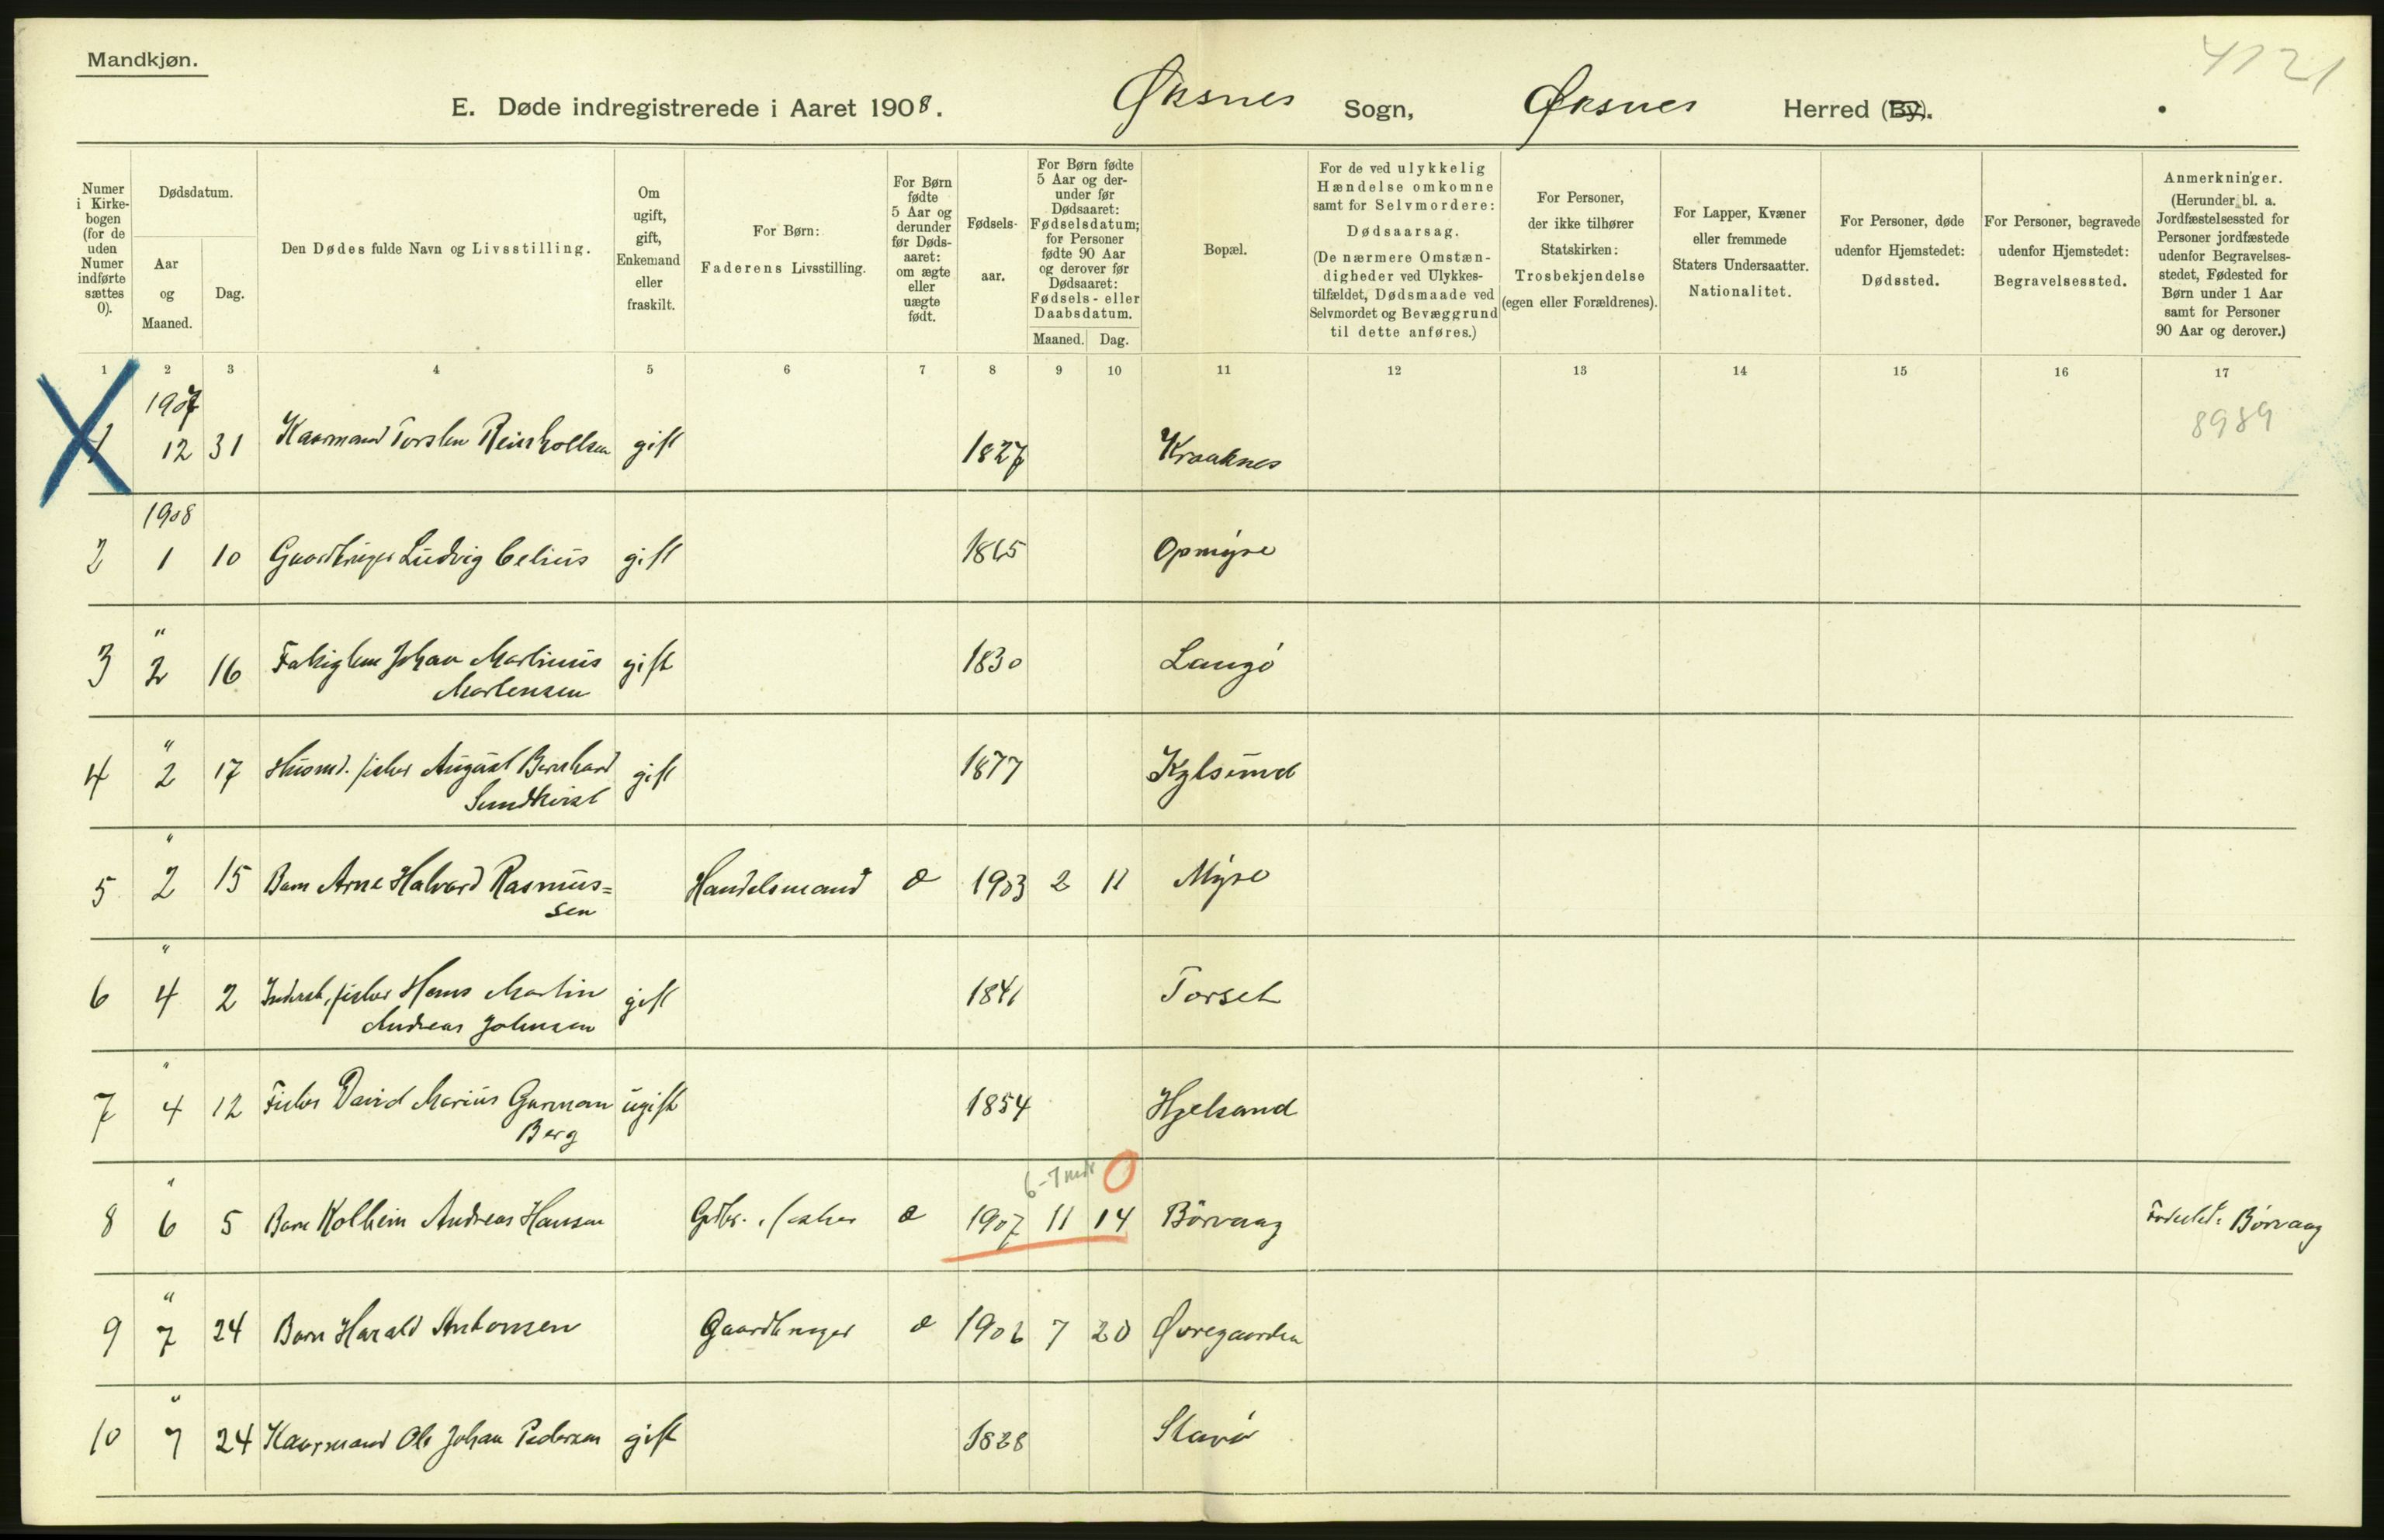 Mandkjøn.
4121
E. Døde indregistrerede i Aaret 1908. Øksnes Sogn, Øksnes Herred (By).
Numer
i Kirke-
bogen
(for de
uden
Numer
indførte
sættes
0).
Dødsdatum.
Aar
og
Maaned.
Dag.
Den Dødes fulde Navn og Livsstilling.
Om
ugift,
gift,
Enkemand
eller
fraskilt.
For Børn:
Faderens Livsstilling.
For Børn
fødte
5 Aar og
derunder
før Døds-
aaret:
om ægte
eller
uægte
født.
Fødsels-
aar.
For Børn fødte
5 Aar og der-
under før
Dødsaaret:
Fødselsdatum;
for Personer
fødte 90 Aar
og derover før
Dødsaaret:
Fødsels- eller
Daabsdatum.
Maaned. Dag.
Bopæl.
For de ved ulykkelig
Hændelse omkomne
samt for Selvmordere:
Dødsaarsag.
(De nærmere Omstæn-
digheder ved Ulykkes-
tilfældet, Dødsmaade ved
Selvmordet og Bevæggrund
til dette anføres.)
For Personer,
der ikke tilhører
Statskirken:
Trosbekjendelse
(egen eller Forældrenes).
For Lapper, Kvæner
eller fremmede
Staters Undersaatter.
Nationalitet.
For Personer, døde
udenfor Hjemstedet:
Dødssted.
For Personer, begravede
udenfor Hjemstedet:
Begravelsessted.
Anmerkninger.
(Herunder bl. a.
Jordfæstelsessted for
Personer jordfæstede
udenfor Begravelses-
stedet, Fødested for
Børn under 1 Aar
samt for Personer
90 Aar og derover.)
1 2 3 4 5 6 7 8 9 10 11 12 13 14 15 16 17
1907
1 12 31 Kaarmand Torsten Reinholtsen gift 1827 Kraaknes 8989
1908
2 1 10 Gaardbruger Ludvig Celius gift 1865 Opmyre
"
3 2 16 Fattiglem Johan Martinus gift 1830 Langø
Martensen
"
4 2 17 Husmd. fisker August Bernhard gift 1877
Sundkvist
"
5 2 15 Barn Arne Halvard Rasmus= Handelsmand æ 1903 2 11 Myre
sen
"
6 4 2 Inderst, fisker Hans Martin gift 1841 Torset
Andreas Johnsen
"
7 4 12 Fisker David Marius Garman ugift 1854 Hjelsand
Berg
6-7 mdr 0
"
8 6 5 Barn Kolbein Andreas Hansen Gdbr., fisker æ 1907 11 14 Börvaag Fødested: Börvaag
"
9 7 24 Barn Harald Antonsen Gaardbruger æ 1906 7 20 Øvregaarden
"
10 7 24 Kaarmand Ole Johan Pedersen gift 1828 Skavø